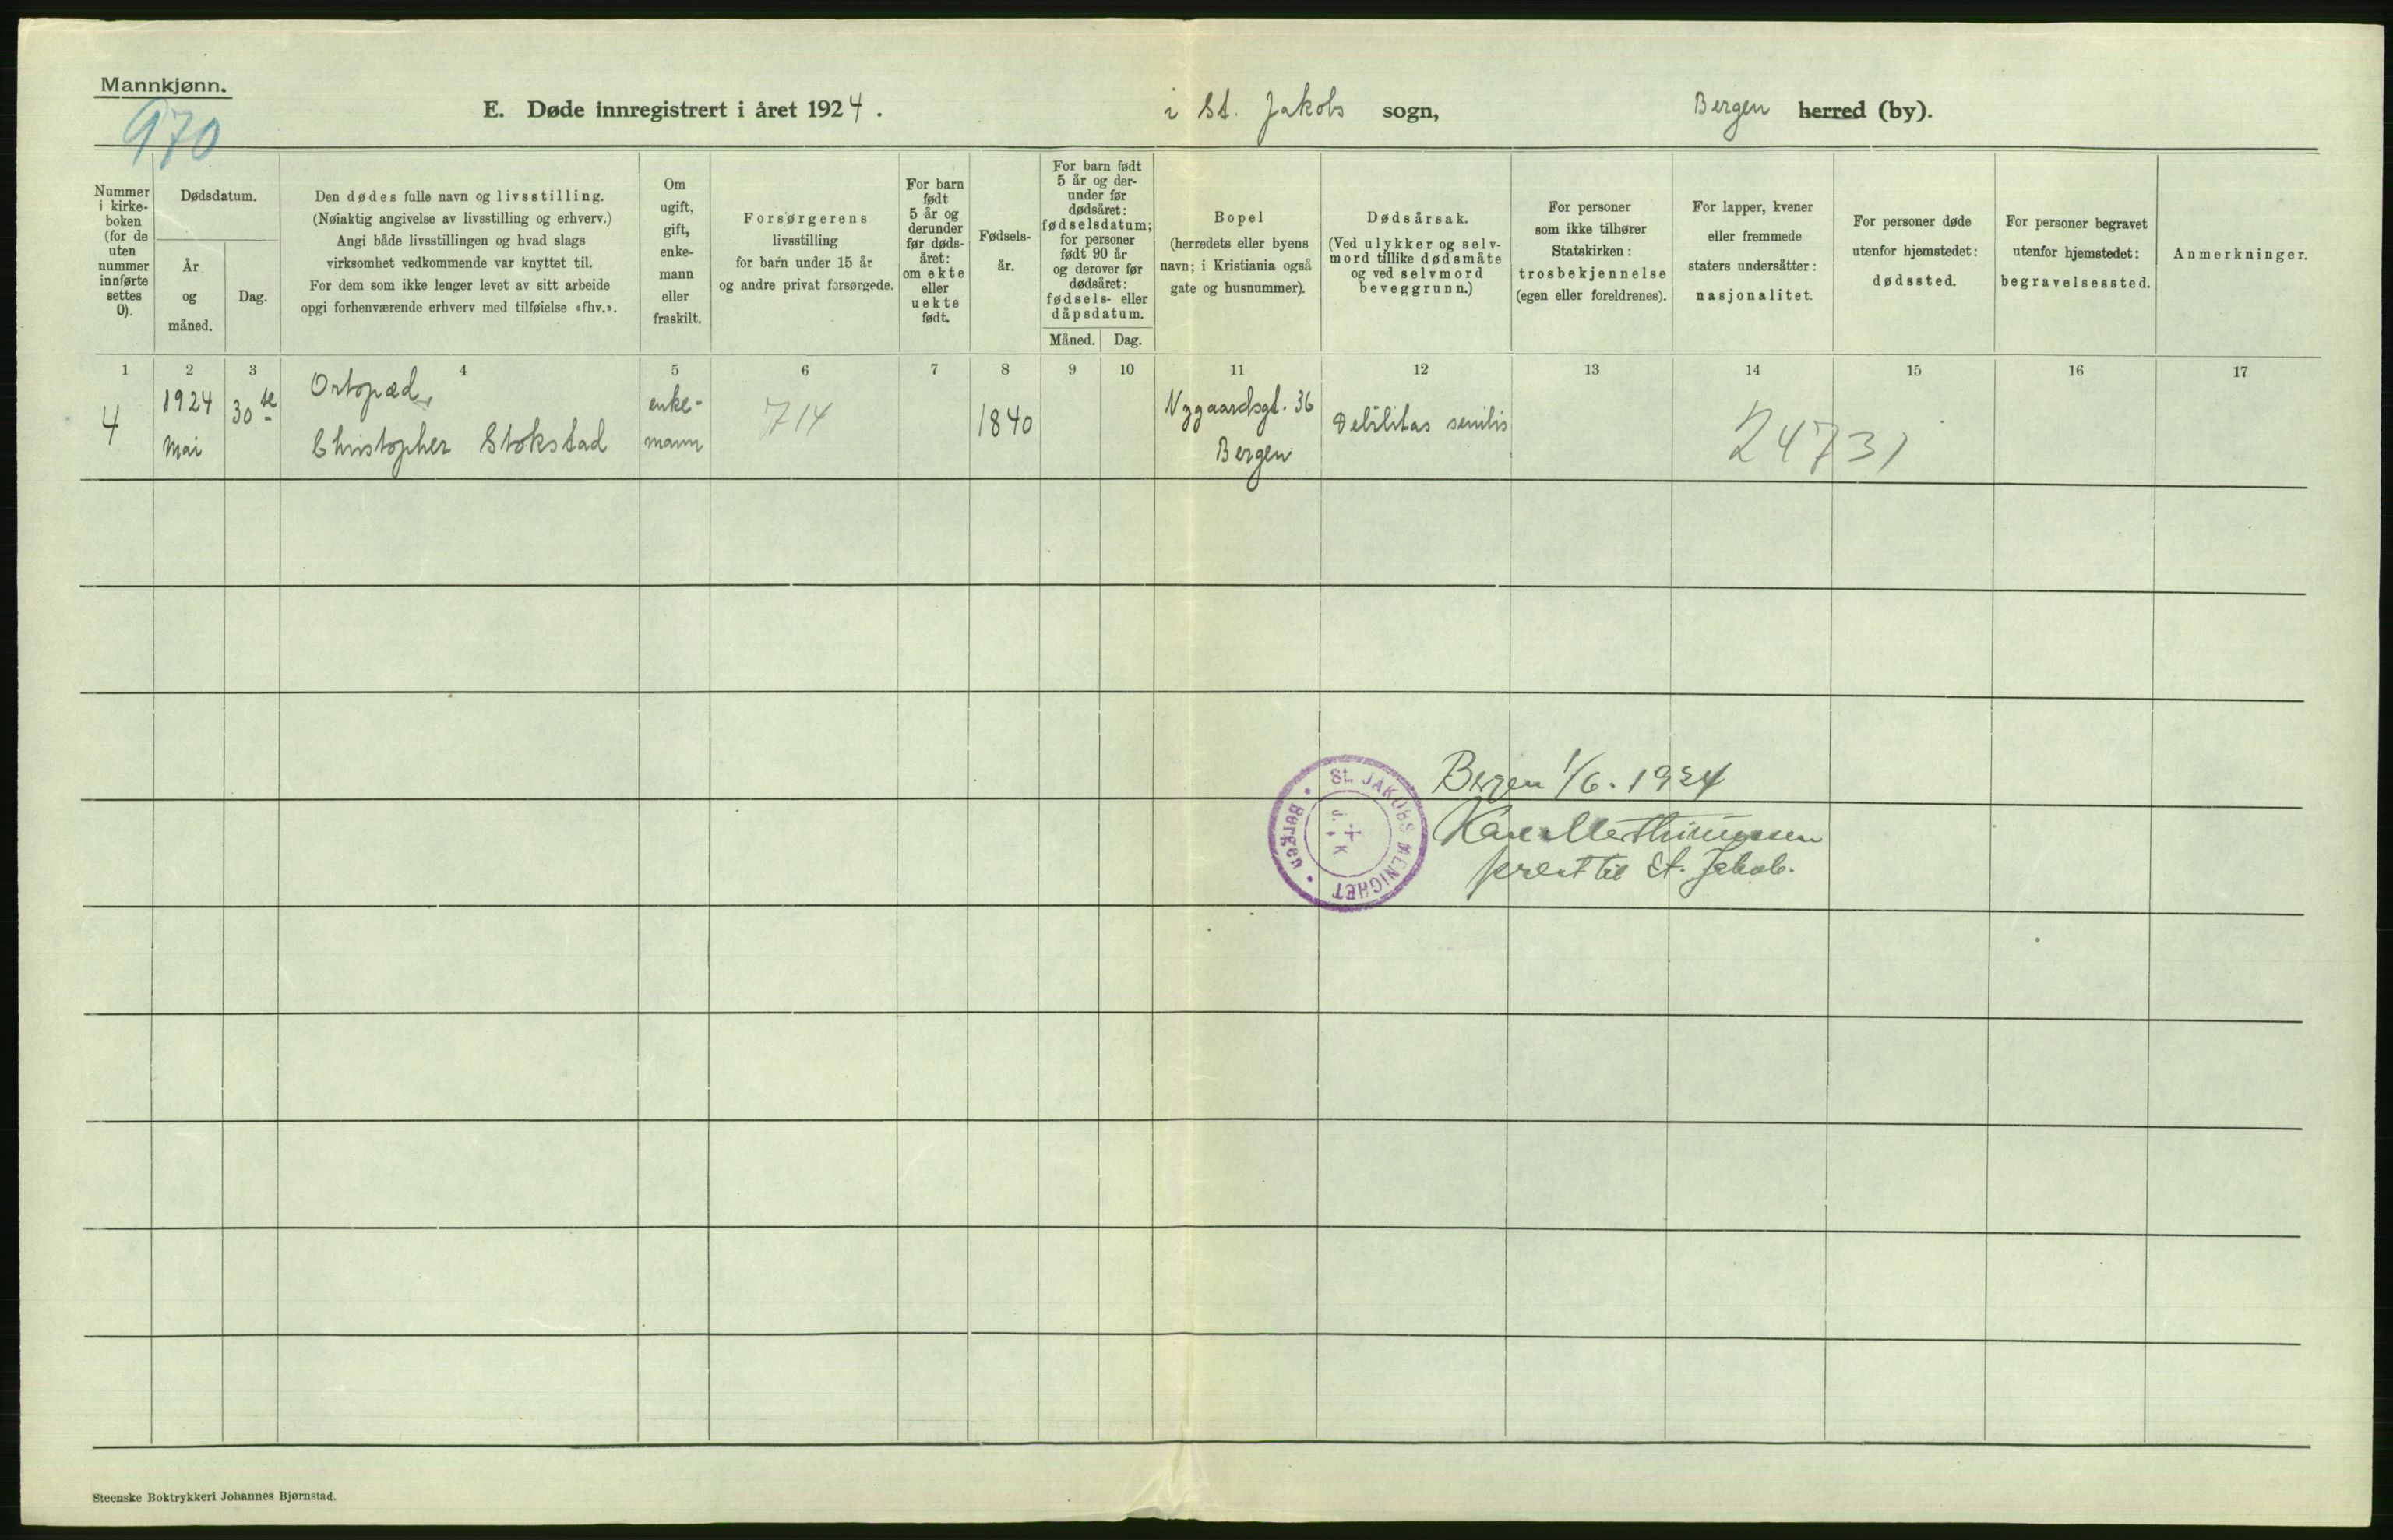 Mannkjønn.
970
E. Døde innregistrert i året 1924. i St. Jakobs sogn, Bergen herred (by).
Nummer
i kirke-
boken
(for de
uten
nummer
innførte
settes
0).
Dødsdatum.
År
og
måned.
Dag.
Den dødes fulle navn og livsstilling.
(Nøiaktig angivelse av livsstilling og erhverv.)
Angi både livsstillingen og hvad slags
virksomhet vedkommende var knyttet til.
For dem som ikke lenger levet av sitt arbeide
opgi forhenværende erhverv med tilføielse «fhv.».
Om
ugift,
gift,
enke-
mann
eller
fraskilt.
Forsørgerens
livsstilling
for barn under 15 år
og andre privat forsørgede.
For barn
født
5 år og
derunder
før døds-
året:
om ekte
eller
uekte
født.
Fødsels-
år.
For barn født
5 år og der-
under før
dødsåret:
fødselsdatum;
for personer
født 90 år
og derover før
dødsåret:
fødsels- eller
dåpsdatum.
Måned. Dag.
Bopel
(herredets eller byens
navn; i Kristiania også
gate og husnummer).
Dødsårsak.
(Ved ulykker og selv-
mord tillike dødsmåte
og ved selvmord
beveggrunn.)
For personer
som ikke tilhører
Statskirken:
trosbekjennelse
(egen eller foreldrenes).
For lapper, kvener
eller fremmede
staters undersåtter:
nasjonalitet.
For personer døde
utenfor hjemstedet:
dødssted.
For personer begravet
utenfor hjemstedet:
begravelsessted.
Anmerkninger.
1 2 3 4 5 6 7 8 9 10 11 12 13 14 15 16 17
4
1924
Mai
30 te
Ortopæd,
Christopher Stokstad
enke-
mann
714
1840
Nygaardsgt. 36
Bergen
Debilitas senilis
24731
St. JAKOBS MENIGHET • Bergen •
J. K
Bergen 1/6. 1924
prest til St. Jakob.
Steenske Boktrykkeri Johannes Bjørnstad.